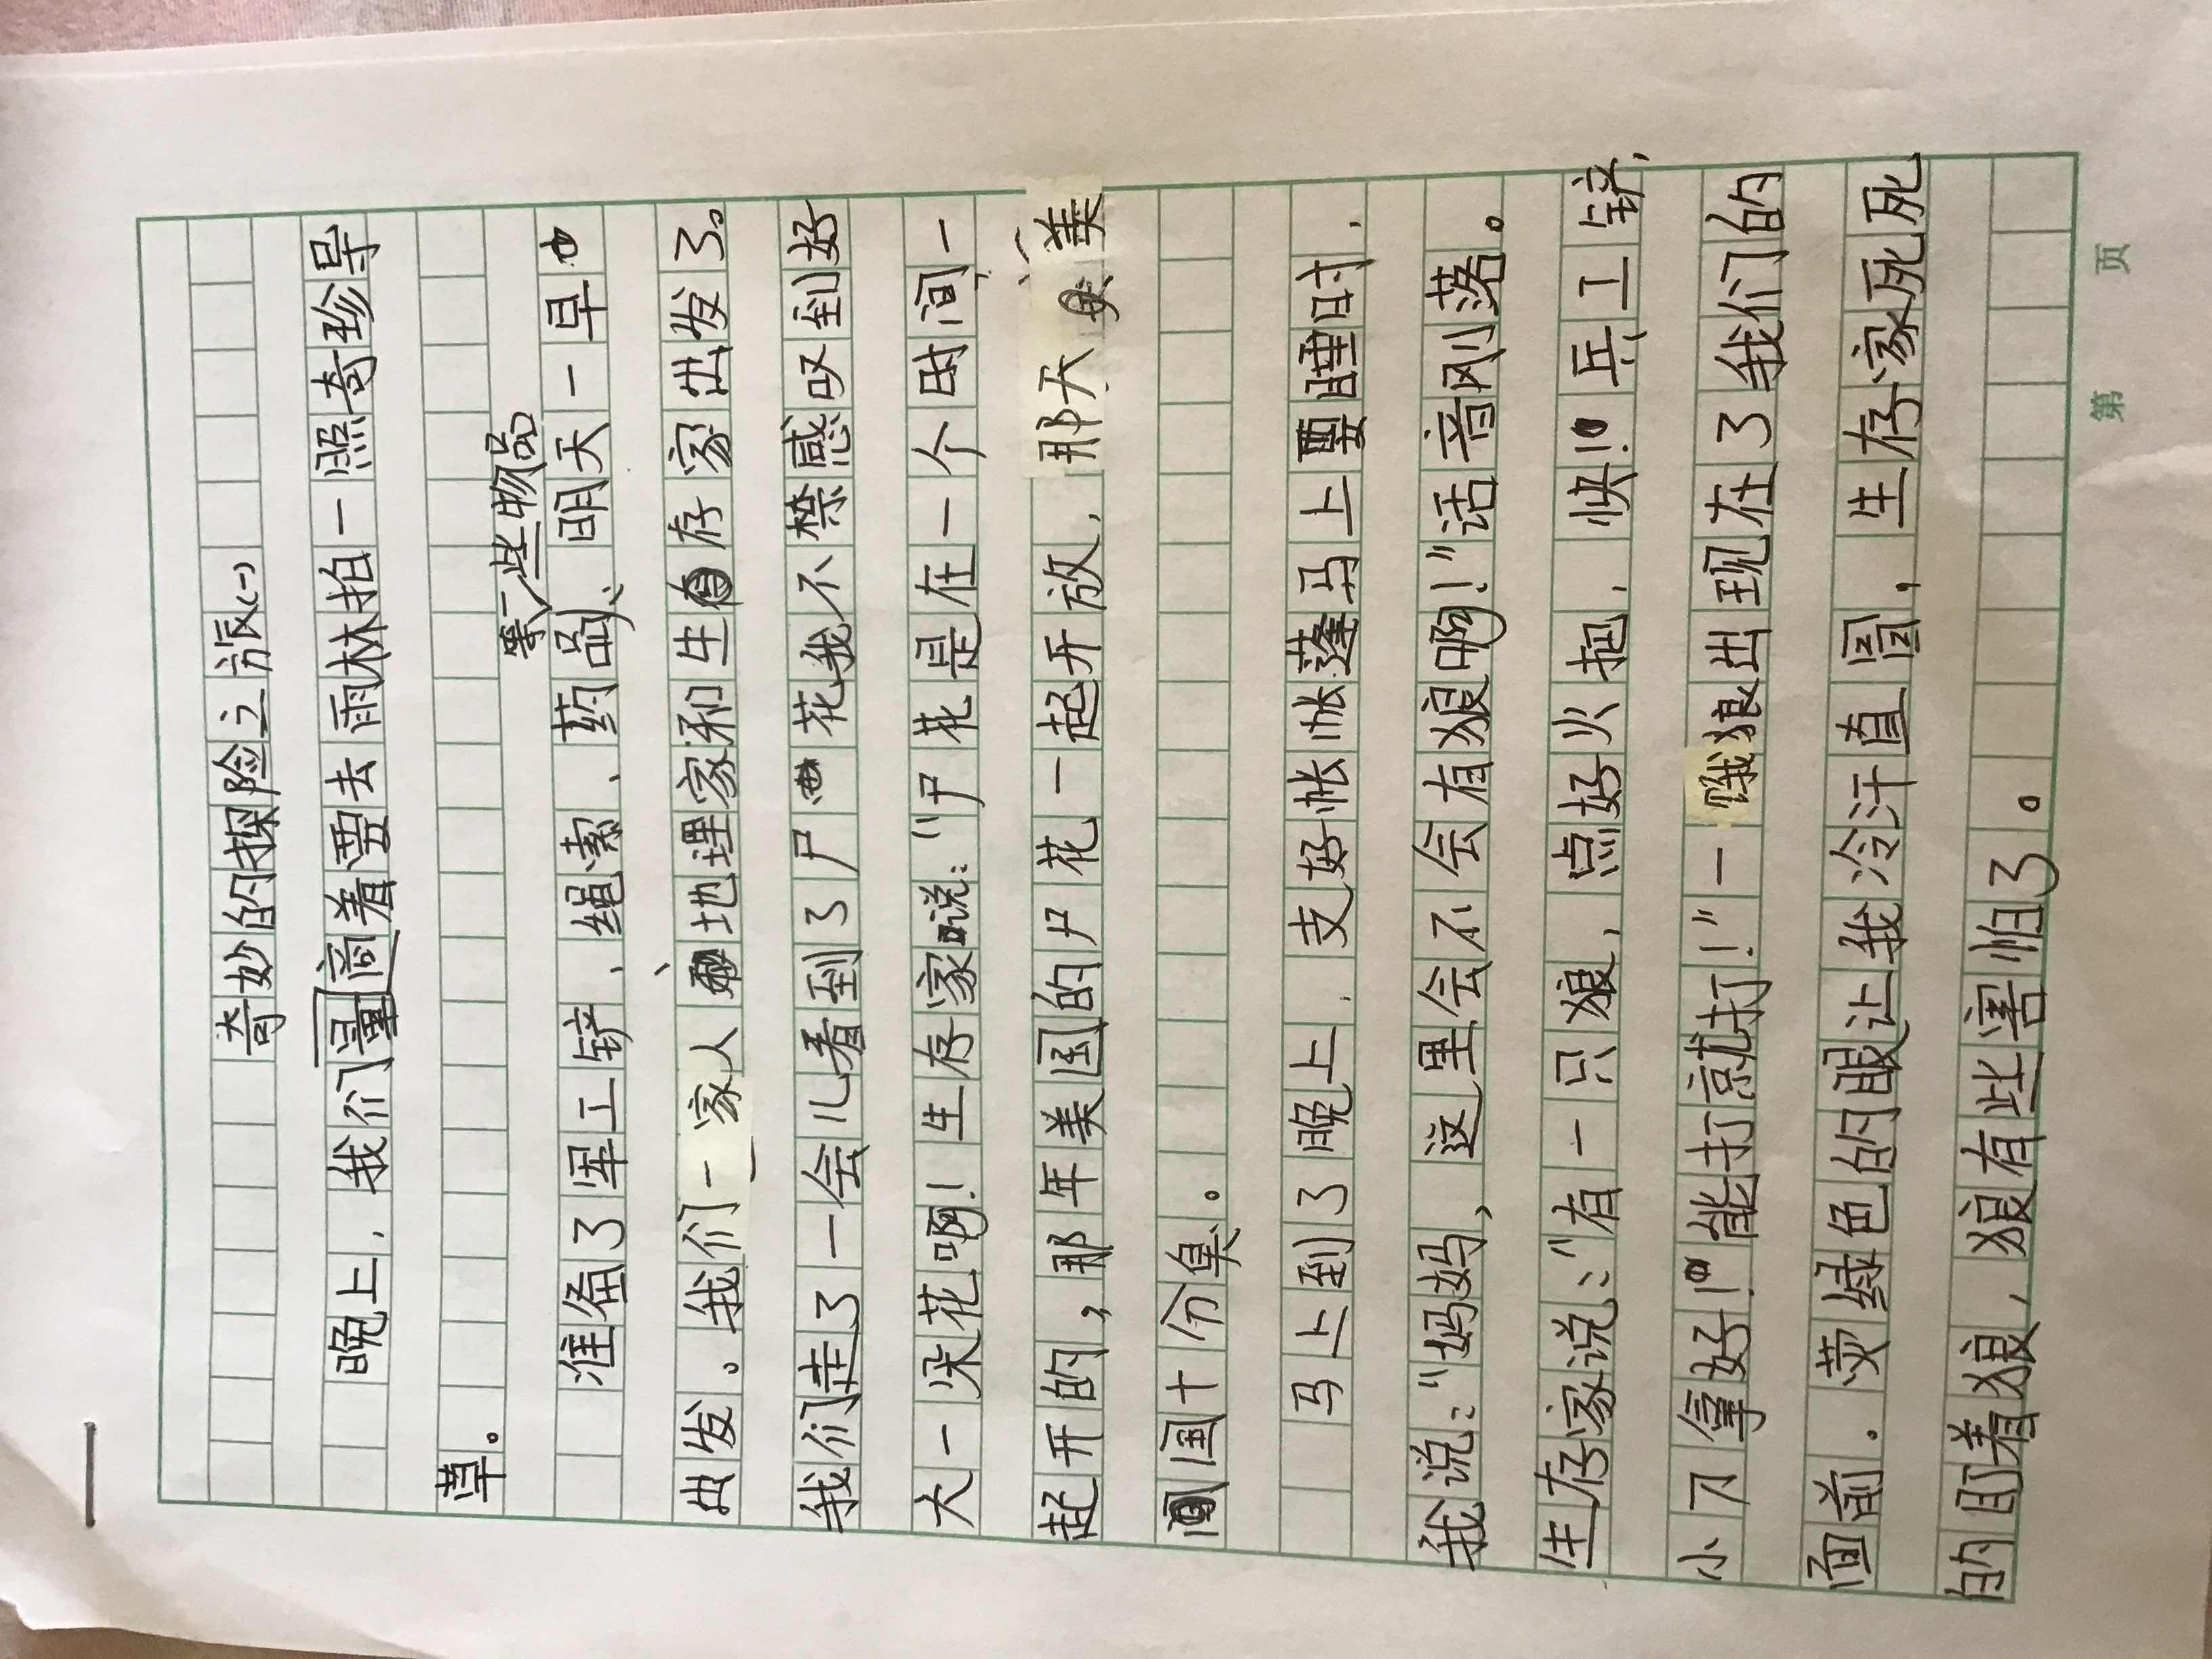 奇妙的探险之旅(一)
晚上,我们量商着要去雨林拍一照奇珍异
草。
等一些物品
准备了军工铲、绳索、药品、明天一早
出发。我们一家人、地理家和生存家出发了。
我们走了一会儿看到了尸花我不禁感叹到好
大一朵花啊!生存家说:“尸花是在一个时间一
起开的,那年美国的尸花一起开放,那天美
国国十分臭。
马上到了晚上,支好帐帐蓬马上要睡时,
我说:“妈妈,这里会不会有狼啊!”话音刚落。
生存家说:“有一只狼,点好火把,快!兵工铲,
小刀拿好!能打就打!”一饿狼出现在了我们的
面前。荧绿色的眼让我冷汗直冒,生存家死死
的盯着狼,狼有些害怕了。
第 页